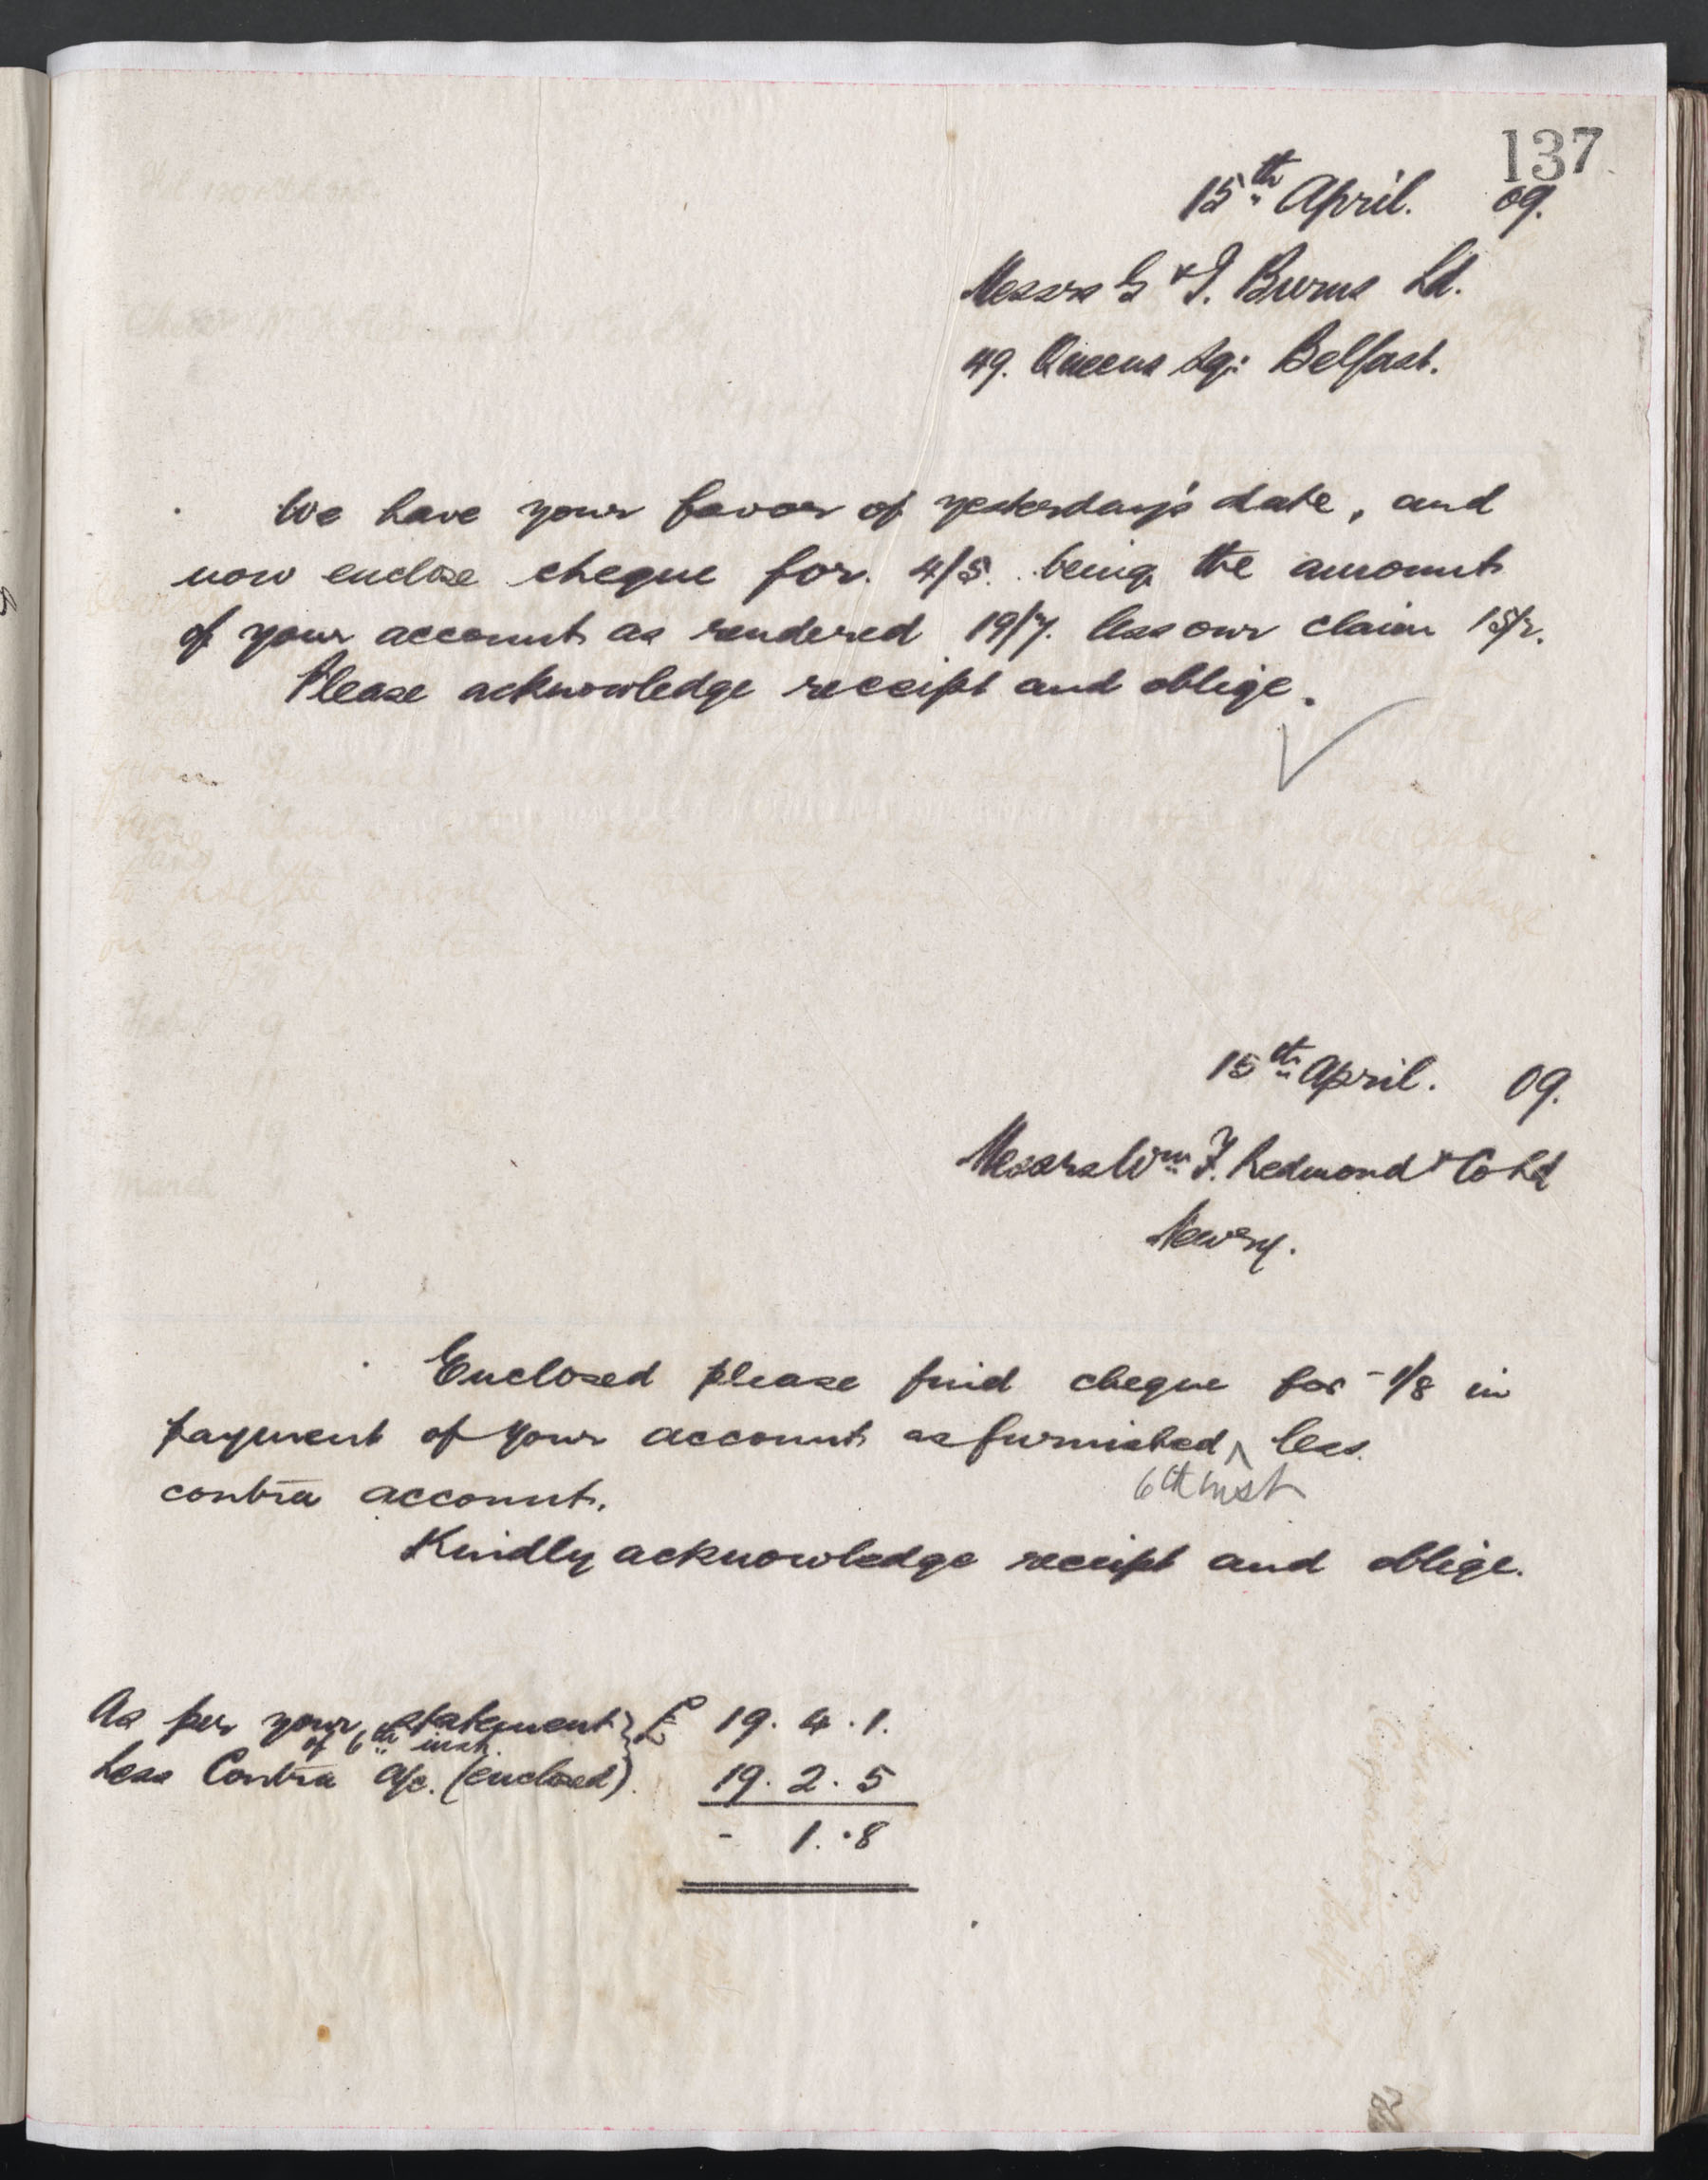 137
15th April. 09.
Messrs G & J. Burns Ld.
49. Queens Sq: Belfast.
We have your favor of yesterday's date, and
now enclose cheque for 4/5. being the amount
of your account as rendered 19/7. less our claim 15/2.
Please acknowledge receipt and oblige.
15th April. 09.
Messrs Wm F. Redmond & Co Ld
Newry.
Enclosed please find cheque for -1/8 in
payment of your account as furnished ^ less
6th inst
contra account.
Kindly acknowledge receipt and oblige.
As per your statement } £ 19. 4. 1.
of 6th inst.
Less Contra a/c. (enclosed). 19. 2. 5
- 1. .8